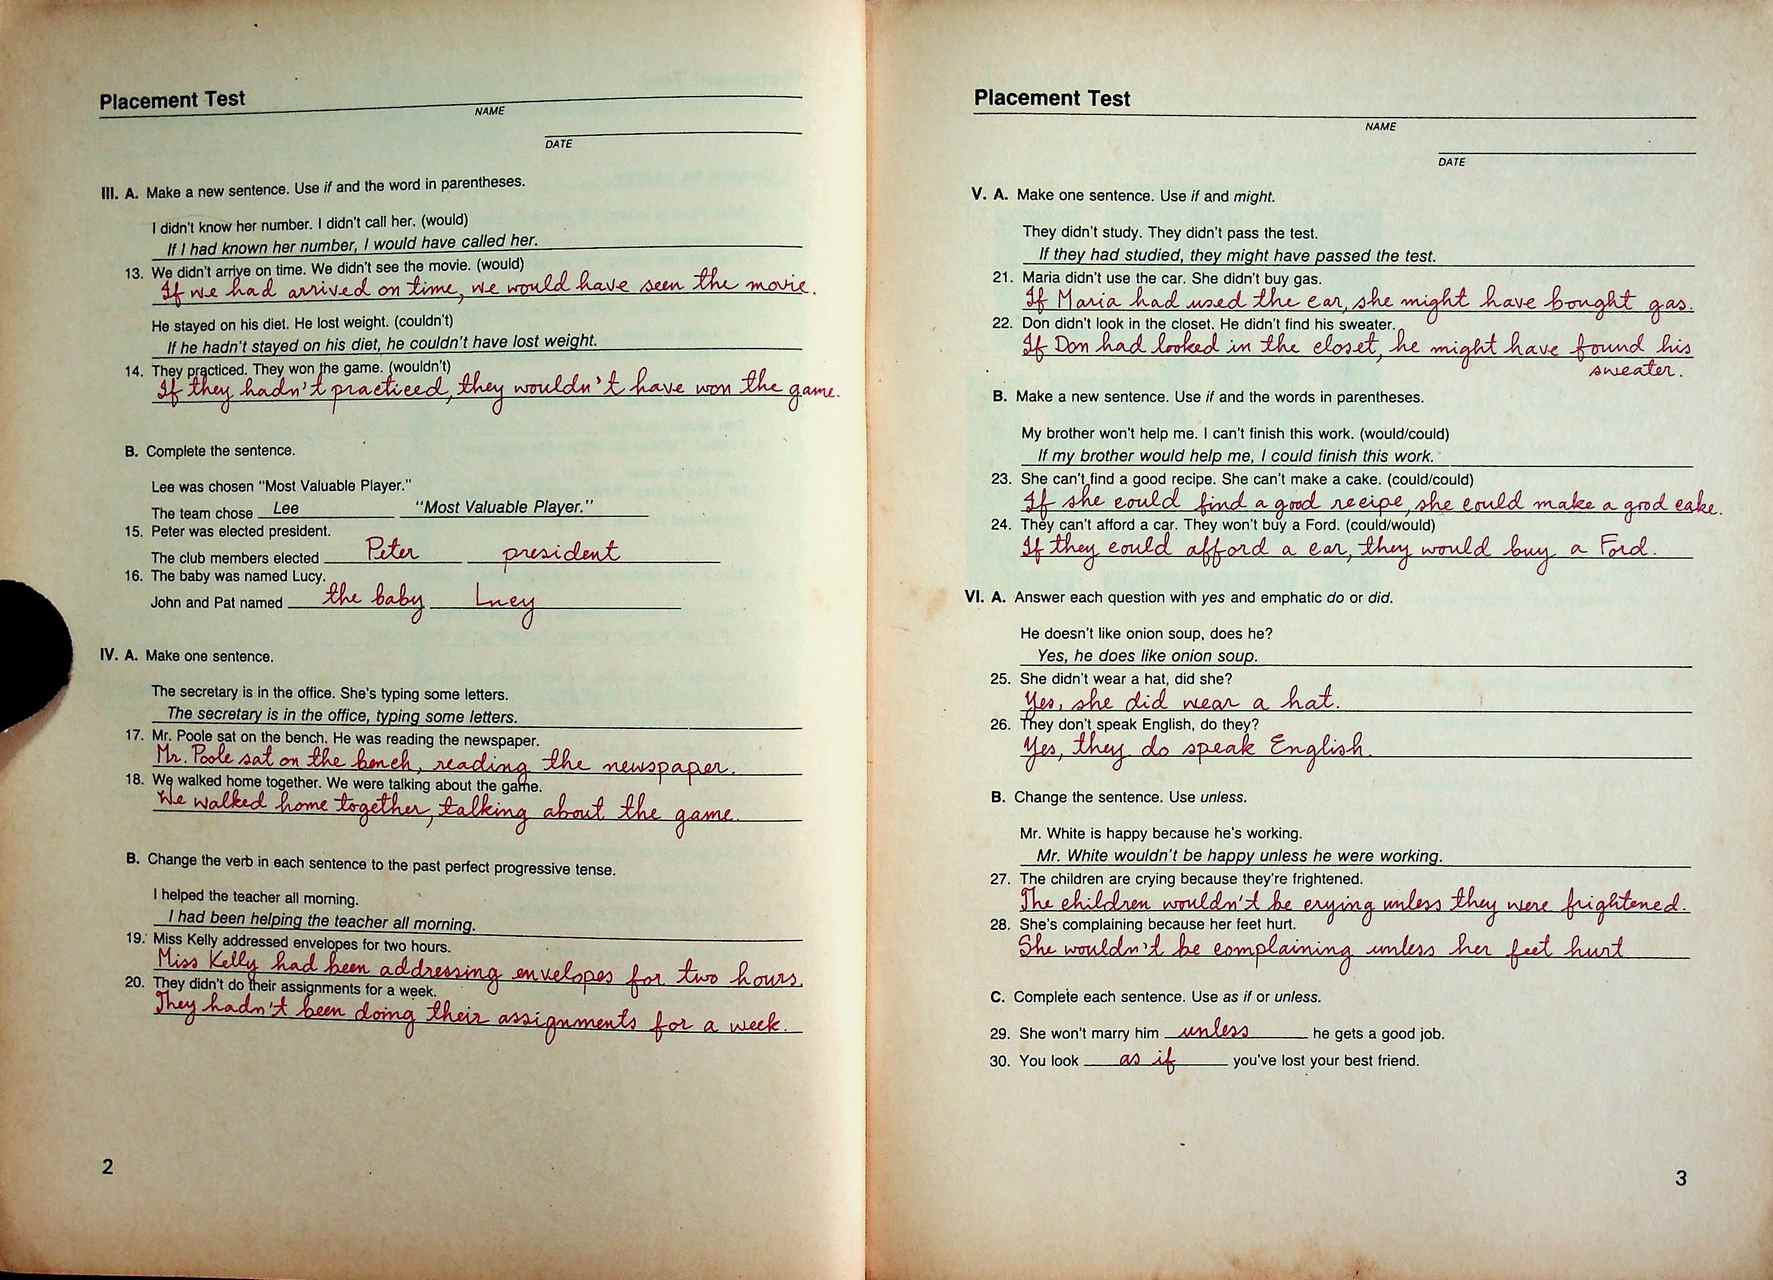 Placement Test
NAME
DATE
III. A. Make a new sentence. Use if and the word in parentheses.
I didn't know her number. I didn't call her. (would)
If I had known her number, I would have called her.
13. We didn't arrive on time. We didn't see the movie. (would)
If we had arrived on time, we would have seen the movie.
He stayed on his diet. He lost weight. (couldn't)
If he hadn't stayed on his diet, he couldn't have lost weight.
14. They practiced. They won the game. (wouldn't)
If they hadn't practiced, they wouldn't have won the game.
B. Complete the sentence.
Lee was chosen "Most Valuable Player."
The team chose Lee "Most Valuable Player."
15. Peter was elected president.
The club members elected Peter president
16. The baby was named Lucy.
John and Pat named the baby Lucy
IV. A. Make one sentence.
The secretary is in the office. She's typing some letters.
The secretary is in the office, typing some letters.
17. Mr. Poole sat on the bench. He was reading the newspaper.
Mr. Poole sat on the bench, reading the newspaper.
18. We walked home together. We were talking about the game.
We walked home together, talking about the game.
B. Change the verb in each sentence to the past perfect progressive tense.
I helped the teacher all morning.
I had been helping the teacher all morning.
19. Miss Kelly addressed envelopes for two hours.
Miss Kelly had been addressing envelopes for two hours.
20. They didn't do their assignments for a week.
They hadn't been doing their assignments for a week.
2
Placement Test
NAME
DATE
V. A. Make one sentence. Use if and might.
They didn't study. They didn't pass the test.
If they had studied, they might have passed the test.
21. Maria didn't use the car. She didn't buy gas.
If Maria had used the car, she might have bought gas.
22. Don didn't look in the closet. He didn't find his sweater.
If Don had looked in the closet, he might have found his
sweater.
B. Make a new sentence. Use if and the words in parentheses.
My brother won't help me. I can't finish this work. (would/could)
If my brother would help me, I could finish this work.
23. She can't find a good recipe. She can't make a cake. (could/could)
If she could find a good recipe, she could make a good cake.
24. They can't afford a car. They won't buy a Ford. (could/would)
If they could afford a car, they would buy a Ford.
VI. A. Answer each question with yes and emphatic do or did.
He doesn't like onion soup, does he?
Yes, he does like onion soup.
25. She didn't wear a hat, did she?
Yes, she did wear a hat.
26. They don't speak English, do they?
Yes, they do speak English.
B. Change the sentence. Use unless.
Mr. White is happy because he's working.
Mr. White wouldn't be happy unless he were working.
27. The children are crying because they're frightened.
The children wouldn't be crying unless they were frightened.
28. She's complaining because her feet hurt.
She wouldn't be complaining unless her feet hurt
C. Complete each sentence. Use as if or unless.
29. She won't marry him unless he gets a good job.
30. You look as if you've lost your best friend.
3